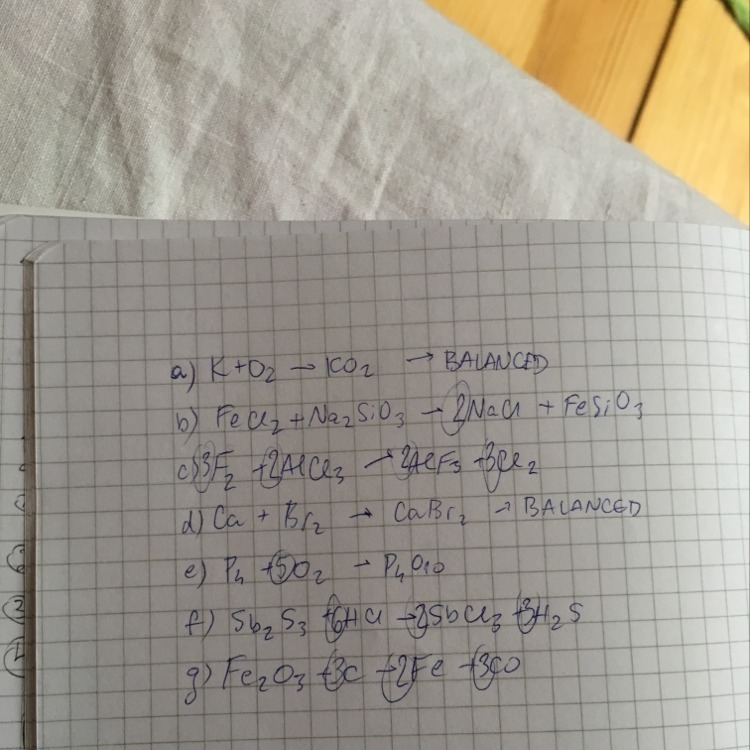 a) K+O2 → KO2 → BALANCED
b) FeCl2 + Na2SiO3 → 2NaCl + FeSiO3
c) 3F2 + 2AlCl3 → 2AlF3 + 3Cl2
d) Ca + Br2 → CaBr2 → BALANCED
e) P4 + 5O2 → P4O10
f) Sb2S3 + 6HCl → 2SbCl3 + 3H2S
g) Fe2O3 + 3C → 2Fe + 3CO